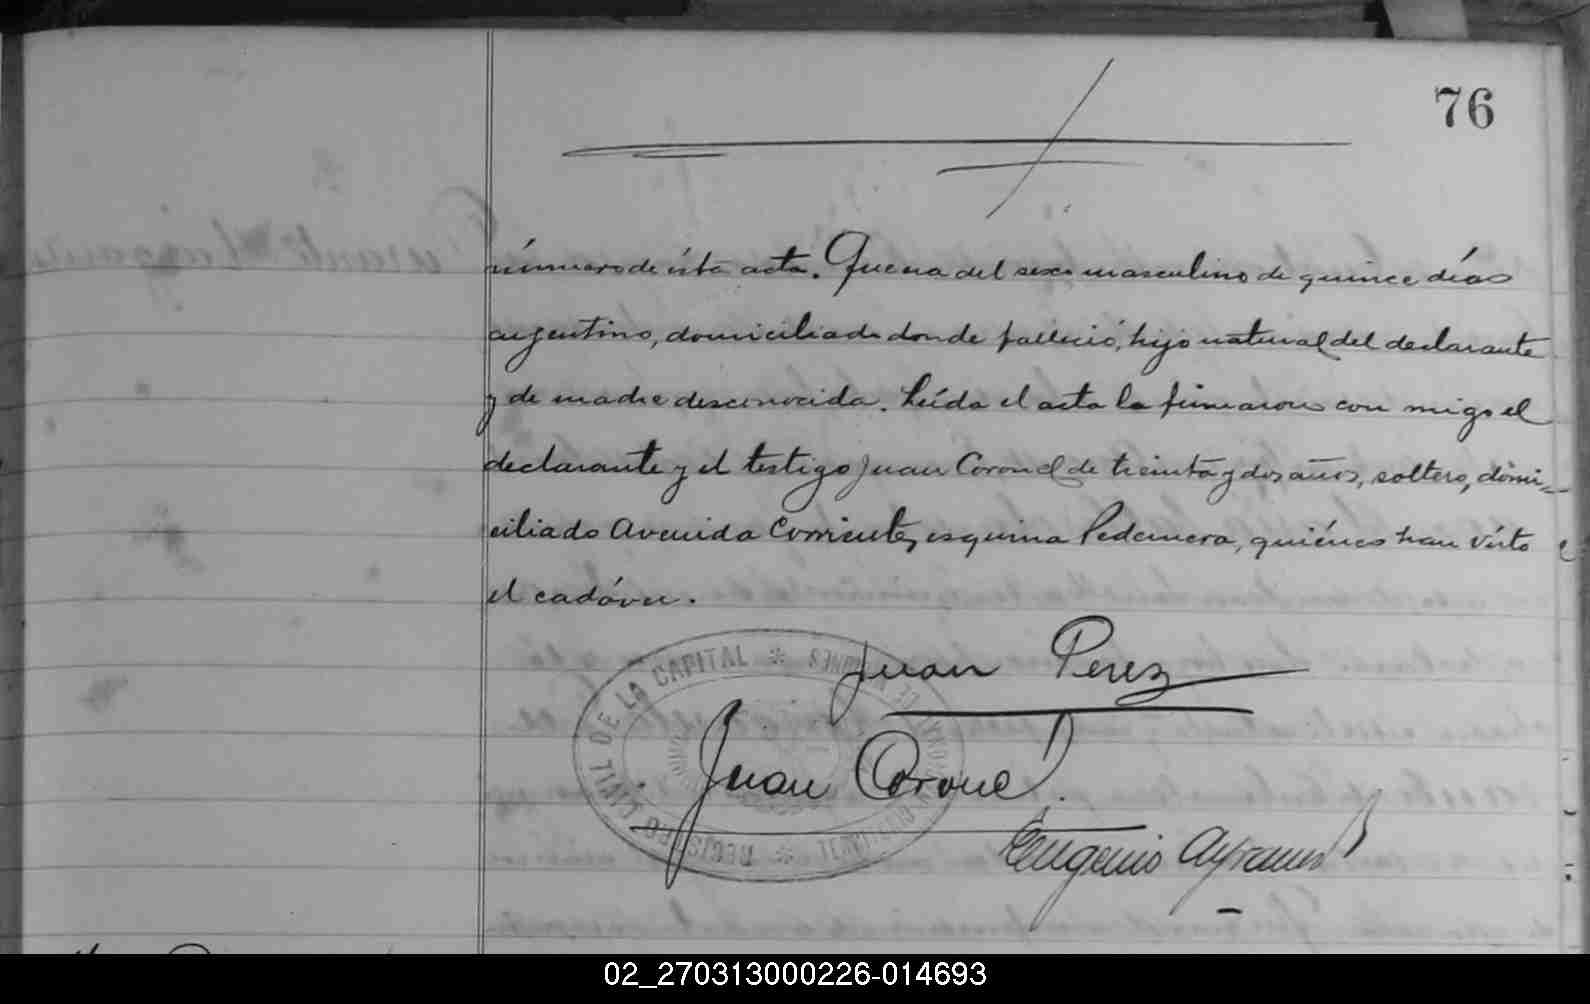 76
número de ésta acta. Que era del sexo masculino de quince días
argentino, domiciliado donde falleció, hijo natural del declarante
y de madre desconocida. Leída el acta la firmaron con migo el
declarante y el testigo Juan Coronel de treinta y dos años, soltero, domi-
ciliado Avenida Corrientes esquina Pedernera, quiénes han visto
el cadáver.
Juan Perez
Juan Coronel
Eugenio
REGISTRO CIVIL DE LA CAPITAL
02_270313000226-014693